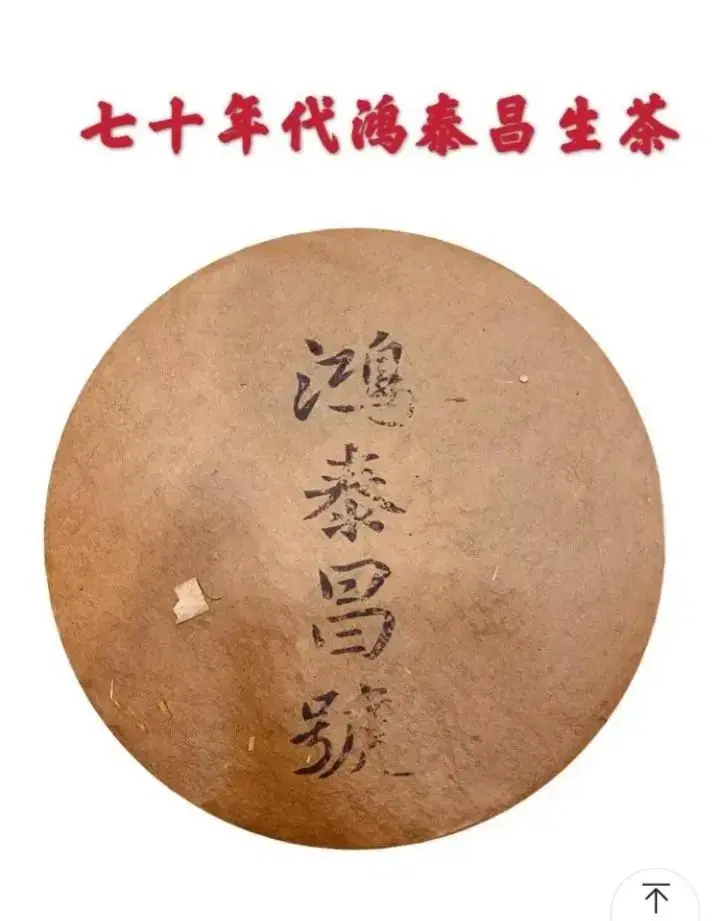 七十年代鴻泰昌生茶
鴻泰昌號